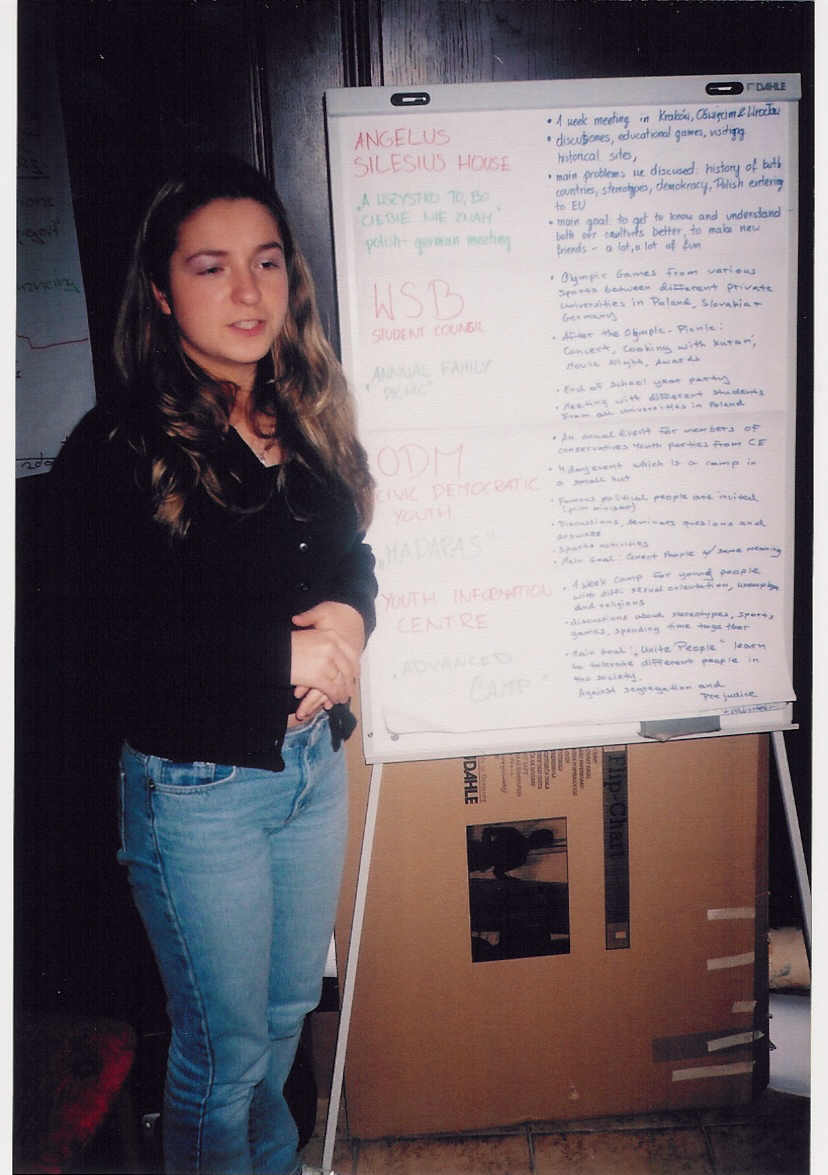 DAHLE
ANGELUS
SILESIUS HOUSE
„A WSZYSTKO TO, BO
CIEBIE NIE ZNAM"
polish-german meeting
• 1 week meeting in Kraków, Oświęcim & Wrocław
• discutiones, educational games, visiting
historical sites,
• main problems we discussed: history of both
countries, sterotypes, demokracy, Polish entering
to EU
• main goal: to get to know and understand
both our cultures better, to make new
friends - a lot, a lot of fun
WSB
STUDENT COUNCIL
„ANNUAL FAMILY
PICNIC"
• Olympic Games from various
sports between different private
universities in Poland, Slovakia +
Germany
• After the Olympic - Picnic:
Concert, Cooking with
Movie Night, Awards
• End of school year party
• Meeting with different students
from all universities in Poland
ODM
CIVIC DEMOCRATIC
YOUTH
„MADARAS"
• An annual Event for members of
conservatives Youth parties from CE
• 4 day event which is a camp in
a small hut
• Famous political people are invited
• Discussions, seminars quesions and
answers
• Sports activities
• Main Goal: People w/ same meaning
YOUTH INFORMATION
CENTRE
„ADVANCED
CAMP"
• 1 week camp for young people
with diffi sexual orientation,
and religions
• discussions about stereotypes, sports,
games, spending time together
• Main Goal: „Unite People" learn
to tolerate different people in
the society.
Against segregation and
Prejudice
DAHLE
Flip-Chart